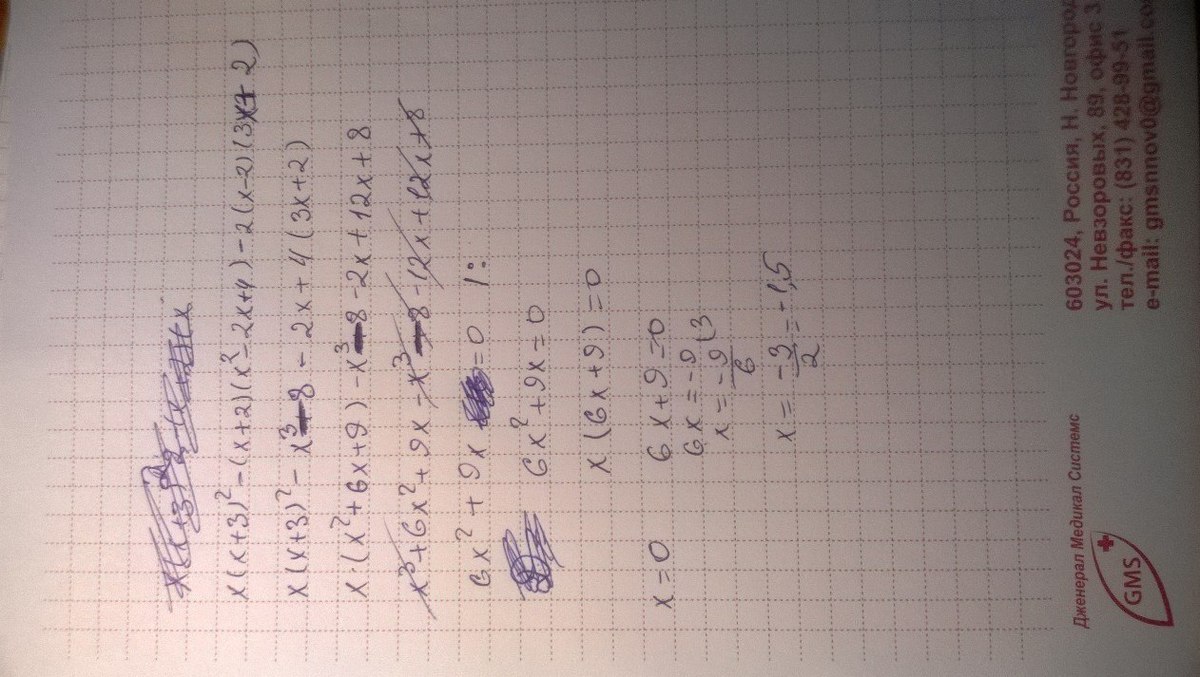 x(x+3)²-(x+2)(x²-2x+4)-2(x-2)(3x+2)
x(x+3)²-x³-8-2x+4(3x+2)
x(x²+6x+9)-x³-8-2x+12x+8
x³+6x²+9x-x³-8-12x+12x+8
6x²+9x =0 |:
6x²+9x=0
x(6x+9)=0
x=0 6x+9=0
6x=-9
x=-9/6 (3
x=-3/2=-1,5
Дженерал Медикал Системс
GMS
603024, Россия, Н. Новгород
ул. Невзоровых, 89, офис 3
тел./факс: (831) 428-99-51
e-mail: gmsnnov0@gmail.co